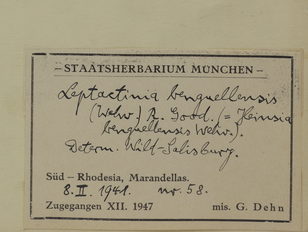 – STAATSHERBARIUM MÜNCHEN –
Leptactinia benguellensis
(Welw.) R. Good. (= Heinsia
benguellensis Welw.).
Determ. Wild-Salisbury.
Süd – Rhodesia, Marandellas.
8. II. 1941. nr. 58.
Zugegangen XII. 1947 mis. G. Dehn